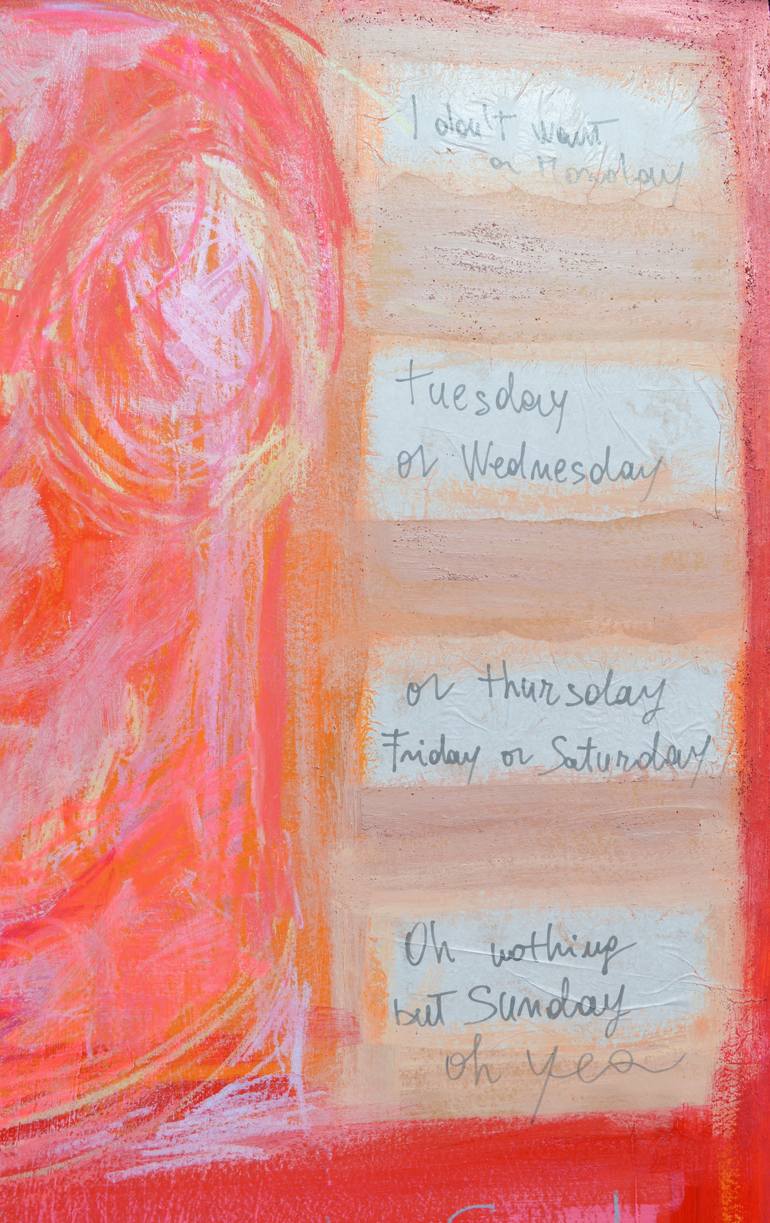 I don't want
a Monday
Tuesday
or Wednesday
or thursday
Friday or Saturday
Oh nothing
but Sunday
oh yea